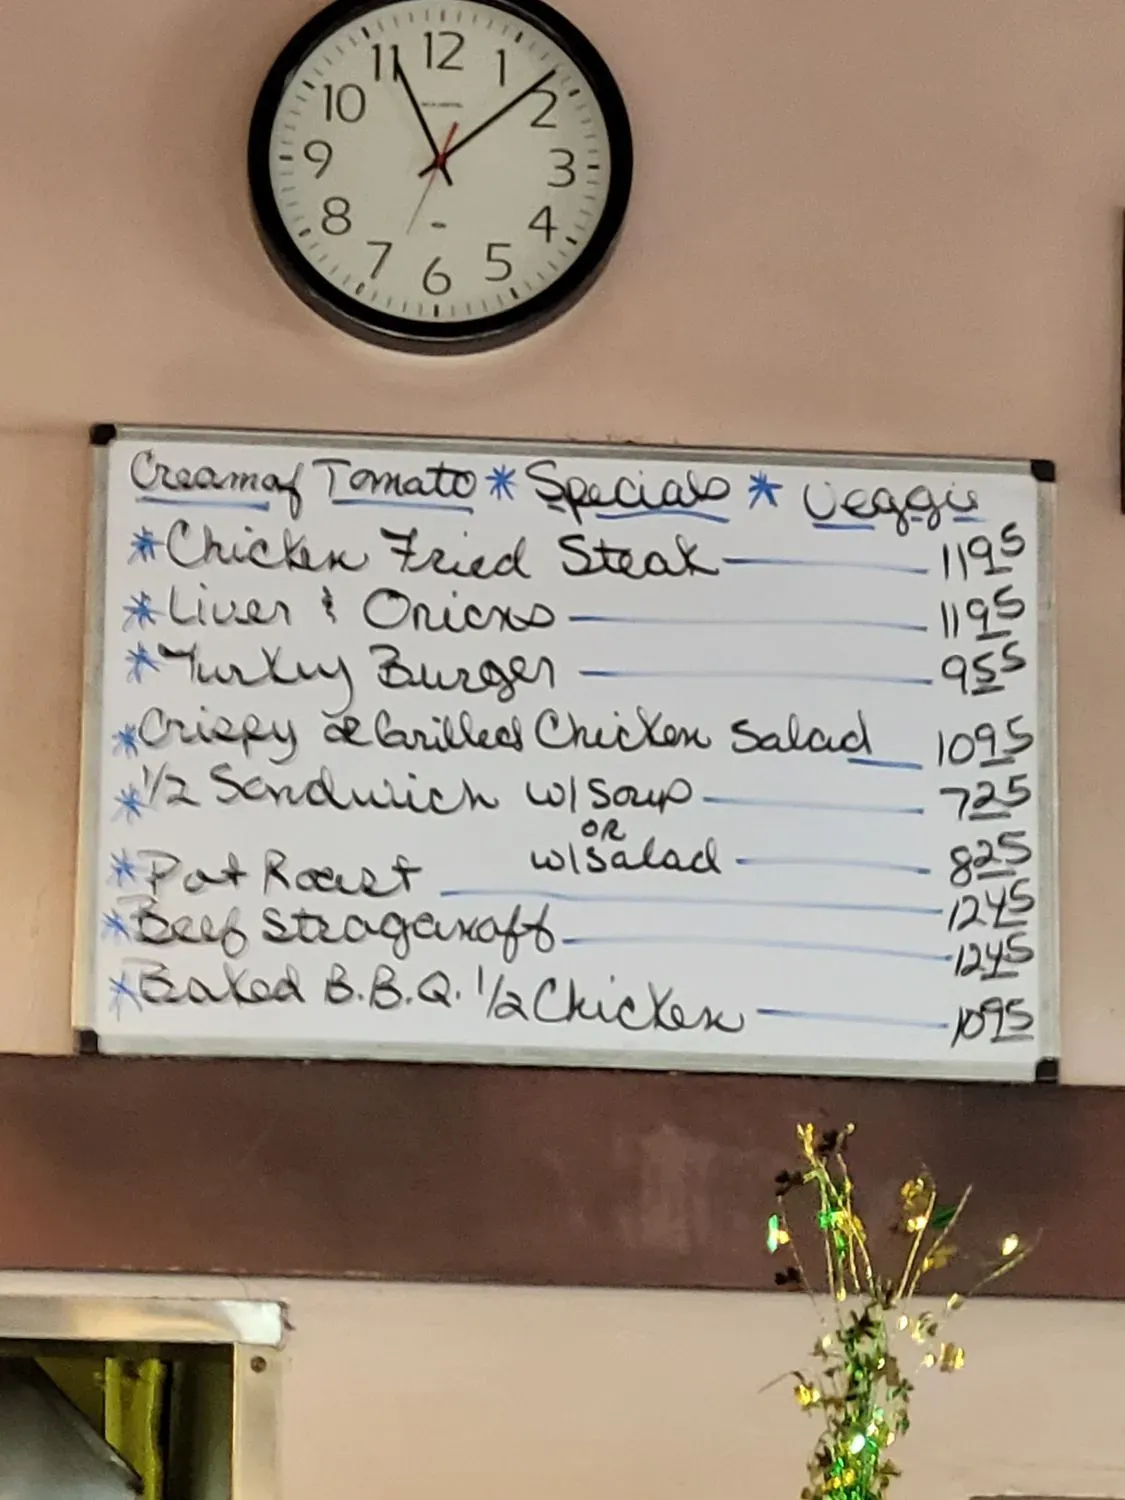 12
11 1
10 2
9 3
8 4
7 5
6
Cream of Tomato * Specials * Veggie
* Chicken Fried Steak 11 95
* Liver & Onions 11 95
* Turkey Burger 9 55
* Crispy or Grilled Chicken Salad 10 95
* 1/2 Sandwich w/ Soup 7 25
OR
w/ Salad 8 25
* Pot Roast 12 45
* Beef Straganoff 12 45
* Baked B.B.Q. 1/2 Chicken 10 95